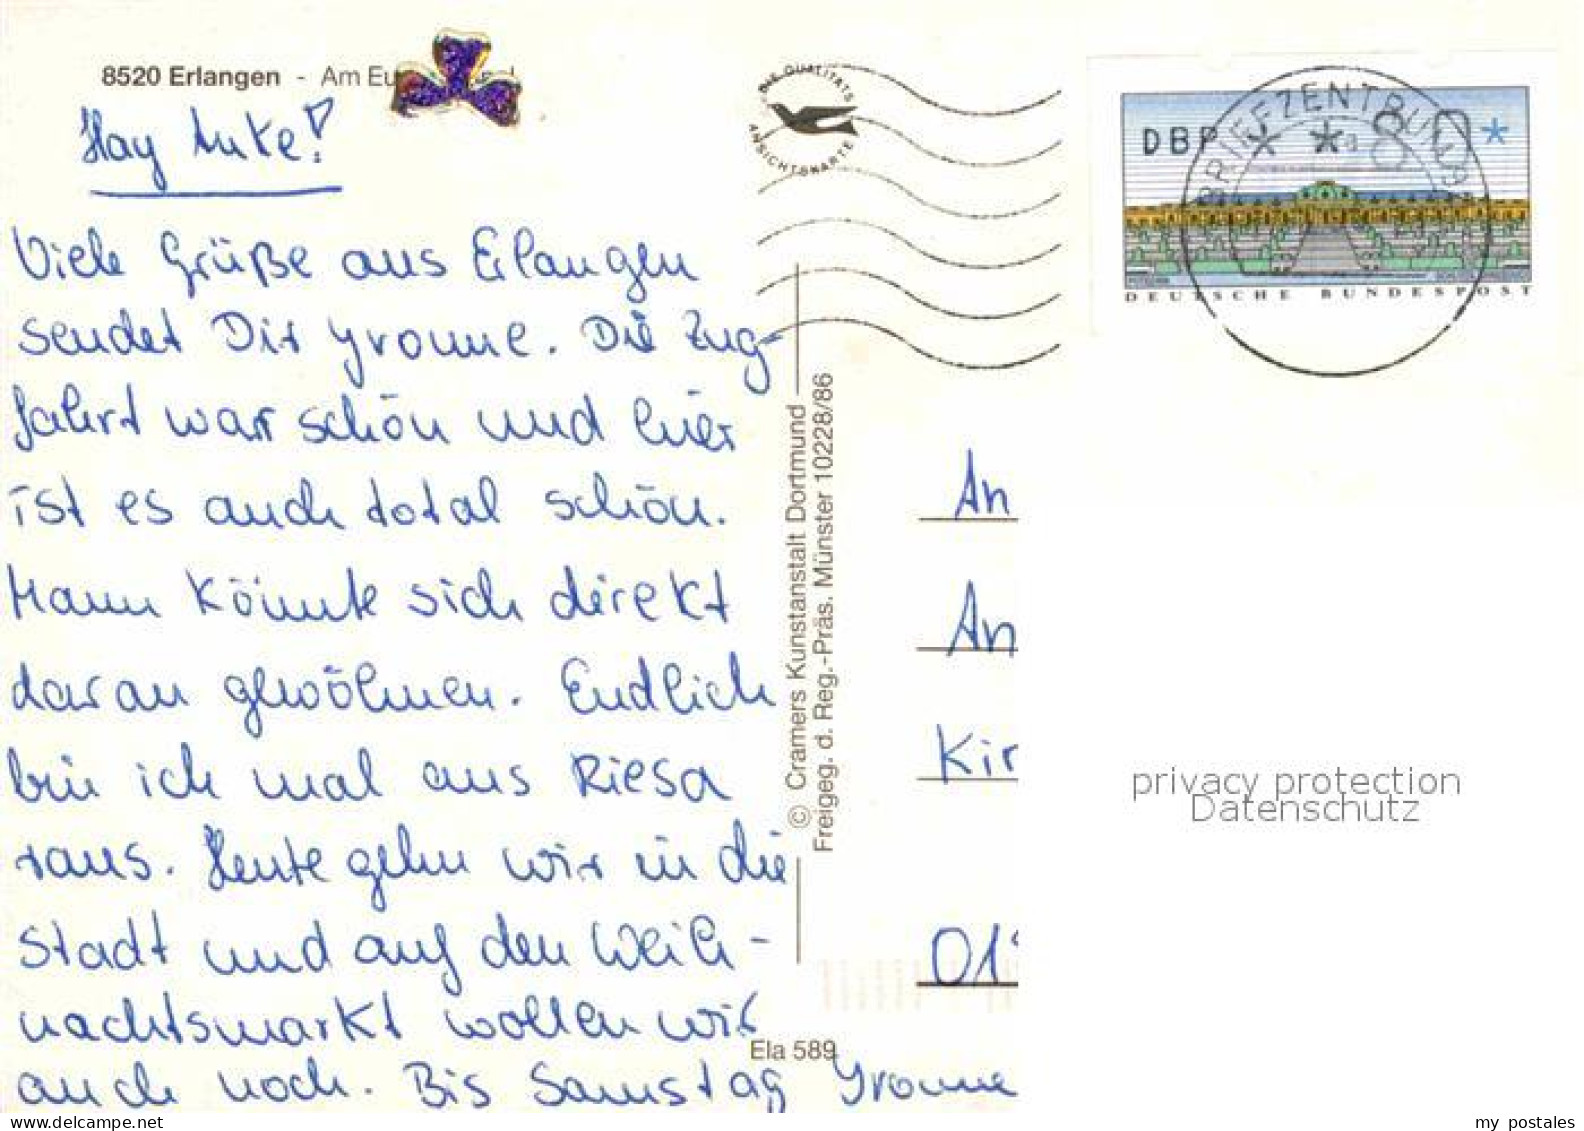 8520 Erlangen - Am Eu
Hay Anke!
Viele Grüße aus Erlangen
sendet Dir Yvonne. Die Zug-
fahrt war schön und hier
ist es auch total schön.
Mann könnte sich direkt
daran gewöhnen. Endlich
bin ich mal aus Riesa
raus. Heute gehn wir in die
Stadt und auf den Weih-
nachtsmarkt wollen wir
auch noch. Bis Samstag Yvonne
DIE QUALITÄTS
ANSICHTSKARTE
© Cramers Kunstanstalt Dortmund
Freigeg. d. Reg.-Präs. Münster 10228/86
Ela 589
BRIEFZENTRUM
DBP * * 80 *
DEUTSCHE BUNDESPOST
An
An
Kir
01
privacy protection
Datenschutz
my postales